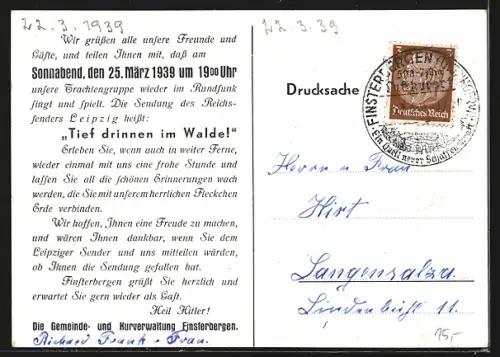 22. 3. 1939
22. 3. 39
Wir grüßen alle unsere Freunde und
Gäste, und teilen Ihnen mit, daß am
Sonnabend, den 25. März 1939 um 19⁰⁰ Uhr
unsere Trachtengruppe wieder im Rundfunk
singt und spielt. Die Sendung des Reichs-
senders Leipzig heißt:
„Tief drinnen im Walde!“
Erleben Sie, wenn auch in weiter Ferne,
wieder einmal mit uns eine frohe Stunde und
lassen Sie all die schönen Erinnerungen wach
werden, die Sie mit unserem herrlichen Fleckchen
Erde verbinden.
Wir hoffen, Ihnen eine Freude zu machen,
und wären Ihnen dankbar, wenn Sie dem
Leipziger Sender und uns mitteilen würden,
ob Ihnen die Sendung gefallen hat.
Finsterbergen grüßt Sie herzlich und
erwartet Sie gern wieder als Gast.
Heil Hitler!
Die Gemeinde- und Kurverwaltung Finsterbergen.
Richard Frank u. Frau.
Drucksache
3
Deutsches Reich
FINSTERBERGEN
Ein Quell neuer
Herrn u Frau
Hirt
Langensalza.
11.
15,-